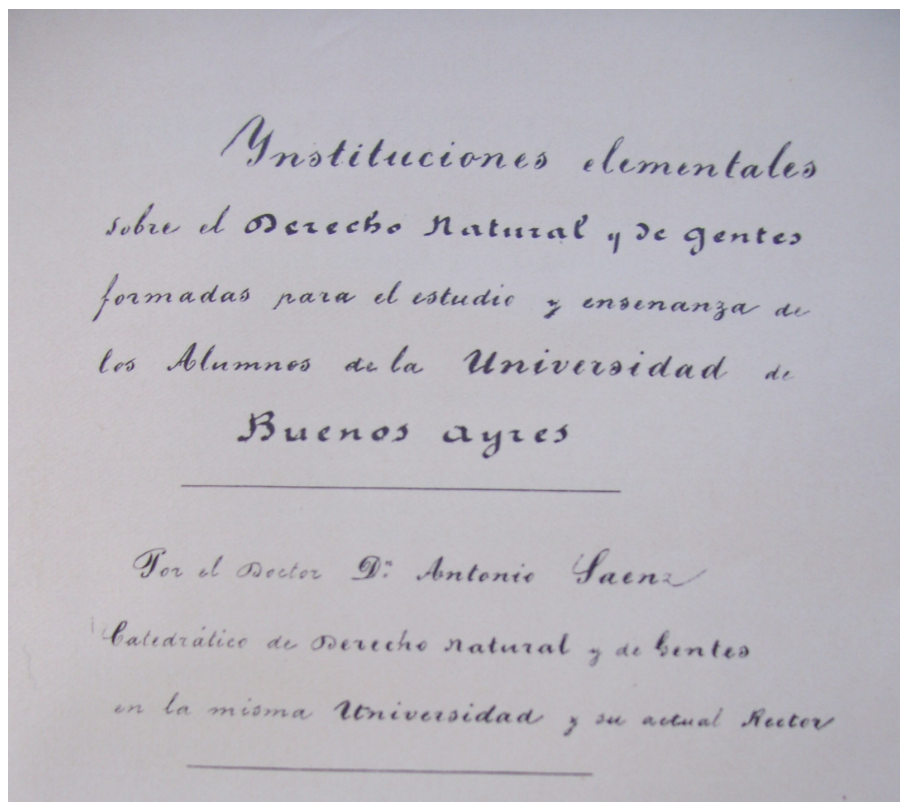 Ynstituciones elementales
sobre el Derecho Natural y de gentes
formadas para el estudio y ensenanza de
los Alumnos de la Universidad de
Buenos Ayres
Por el Doctor Dn. Antonio Saenz
Catedrático de Derecho Natural y de Gentes
en la misma Universidad y su actual Rector